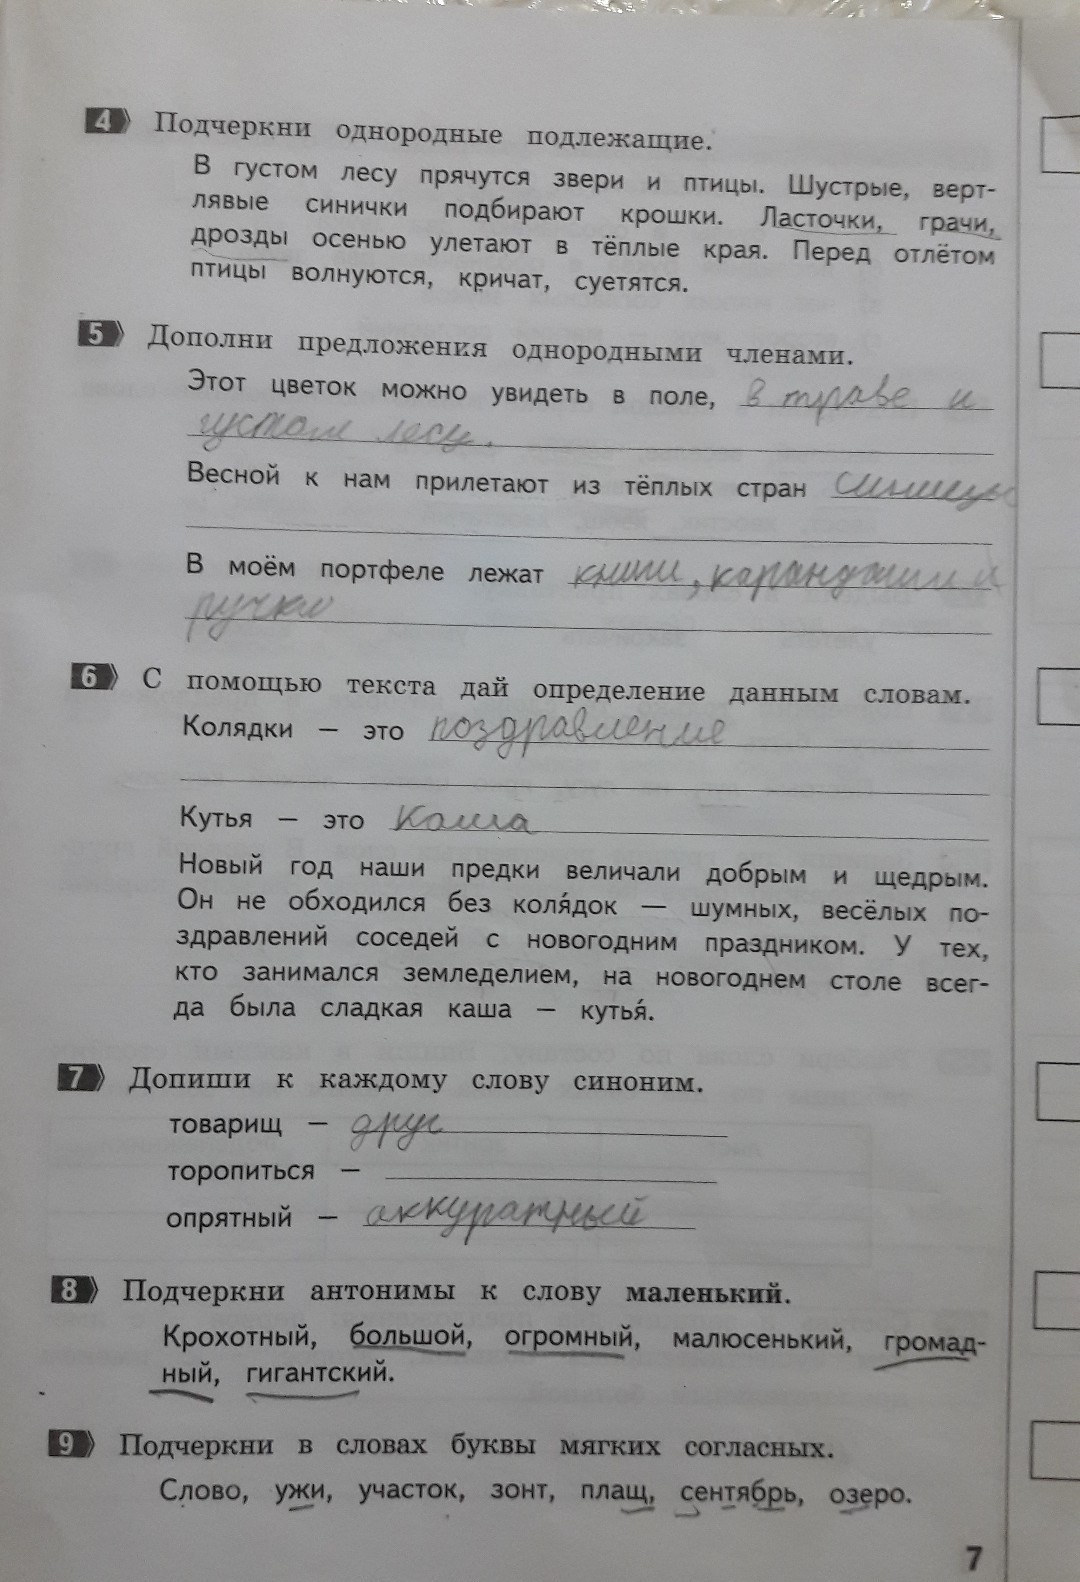 4 Подчеркни однородные подлежащие.
В густом лесу прячутся звери и птицы. Шустрые, верт-
лявые синички подбирают крошки. Ласточки, грачи,
дрозды осенью улетают в тёплые края. Перед отлётом
птицы волнуются, кричат, суетятся.
5 Дополни предложения однородными членами.
Этот цветок можно увидеть в поле, в траве и
густом лесу.
Весной к нам прилетают из тёплых стран синицы
В моём портфеле лежат книги, каранджши и
ручки
6 С помощью текста дай определение данным словам.
Колядки – это поздравление
Кутья – это каша
Новый год наши предки величали добрым и щедрым.
Он не обходился без коля́док — шумных, весёлых по-
здравлений соседей с новогодним праздником. У тех,
кто занимался земледелием, на новогоднем столе всег-
да была сладкая каша – кутья́.
7 Допиши к каждому слову синоним.
товарищ – друг
торопиться –
опрятный – аккуратный
8 Подчеркни антонимы к слову маленький.
Крохотный, большой, огромный, малюсенький, громад-
ный, гигантский.
9 Подчеркни в словах буквы мягких согласных.
Слово, ужи, участок, зонт, плащ, сентябрь, озеро.
7